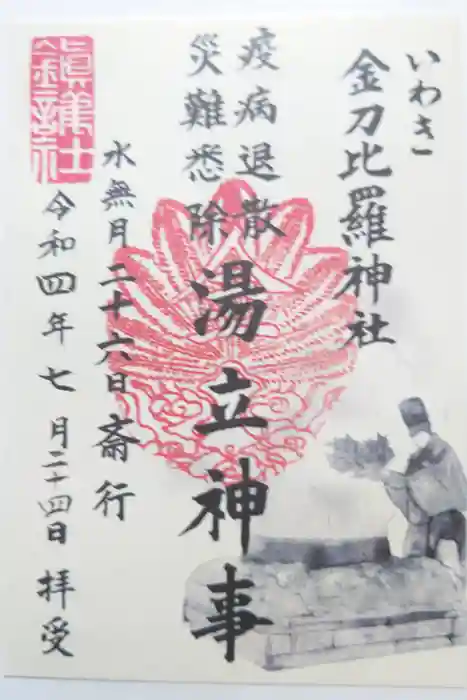 いわき
金刀比羅神社
疫病退散
災難悉除
湯立神事
水無月二十六日斎行
令和四年七月二十四日 拝受